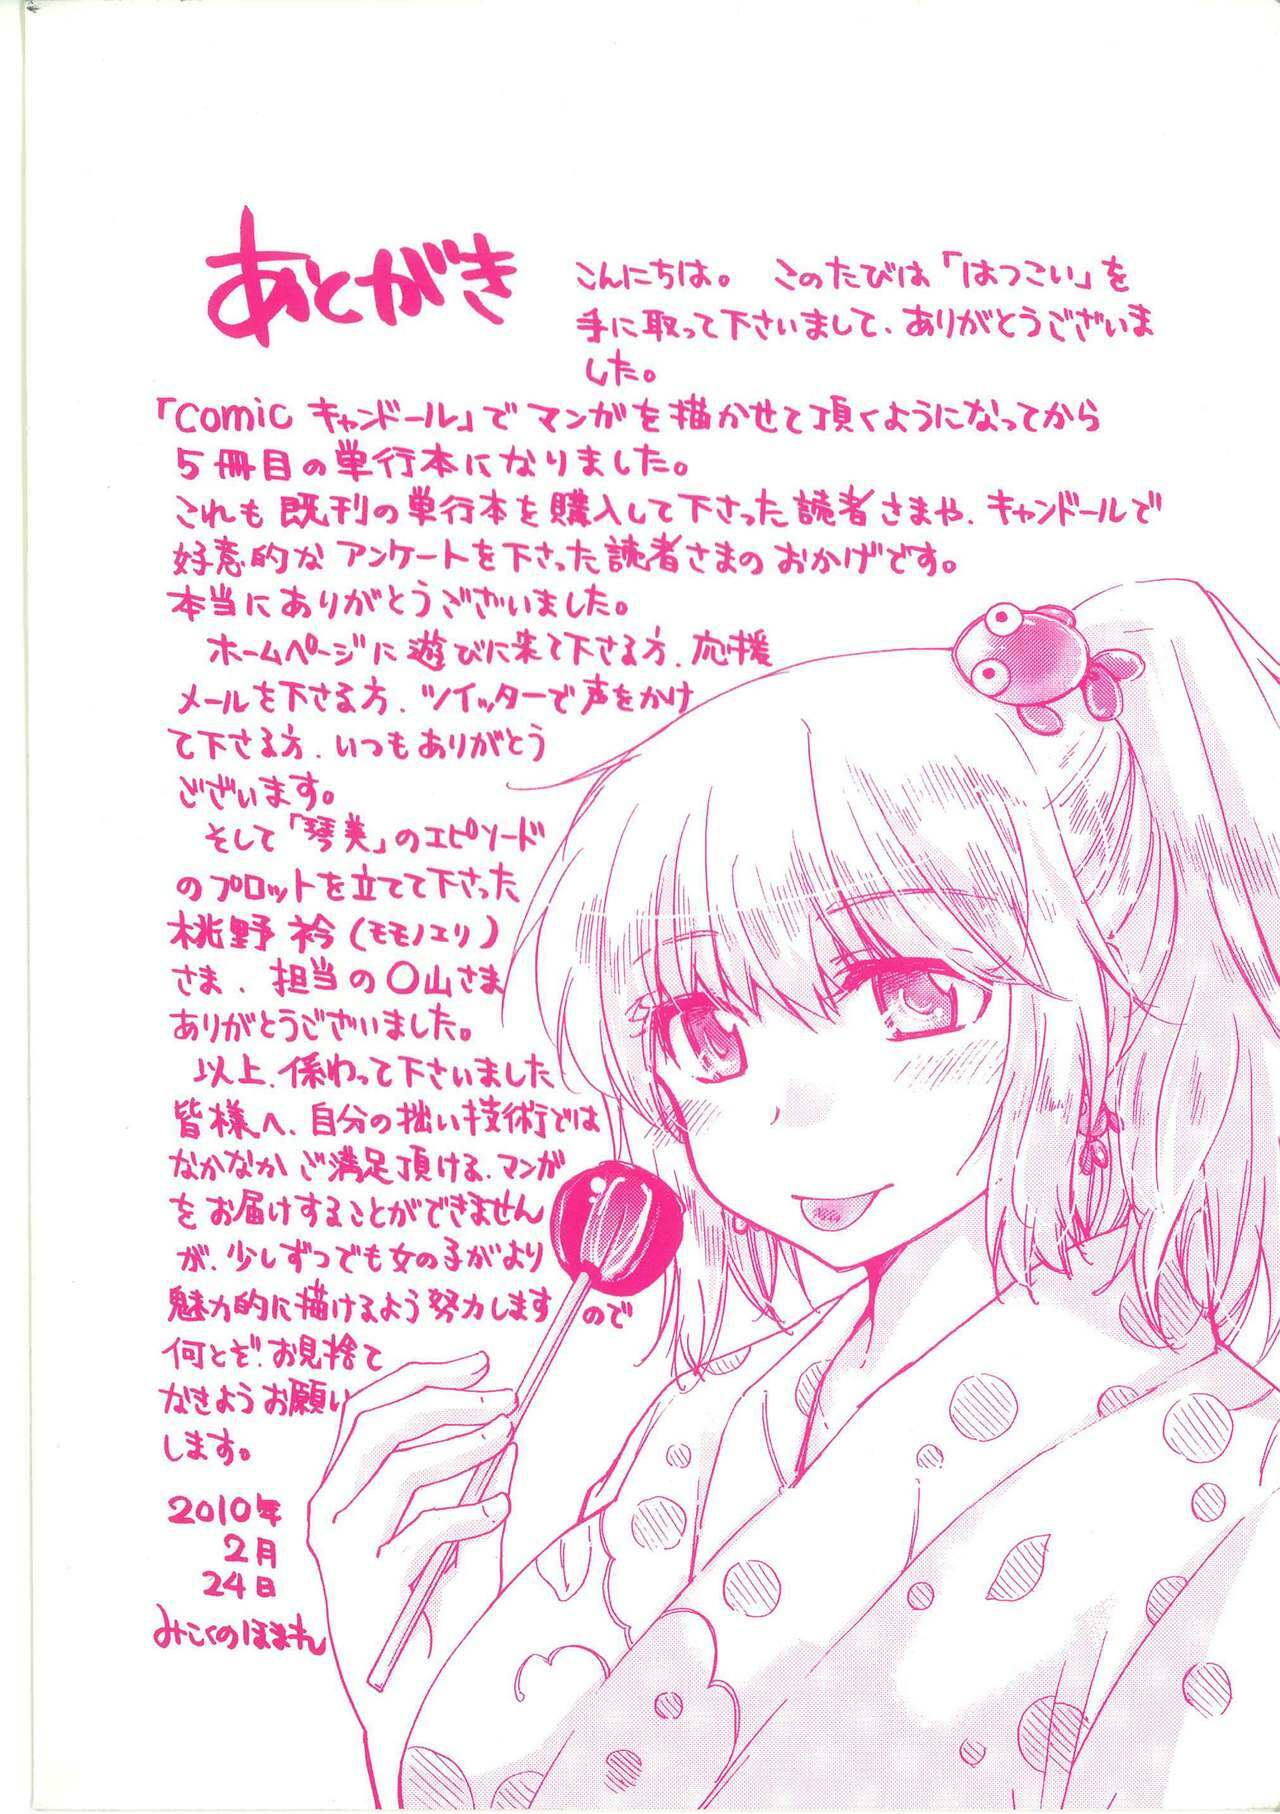 あとがき
こんにちは。 このたびは「はつこい」を
手に取って下さいまして、ありがとうございま
した。
「comic キャンドール」でマンガを描かせて頂くようになってから
5冊目の単行本になりました。
これも既刊の単行本を購入して下さった読者さまや、キャンドールで
好意的なアンケートを下さった読者さまのおかげです。
本当にありがとうございました。
ホームページに遊びに来て下さる方、応援
メールを下さる方、ツイッターで声をかけ
て下さる方、いつもありがとう
ございます。
そして「琴美」のエピソード
のプロットを立てて下さった
桃野衿(モモノエリ)
さま、担当の〇山さま
ありがとうございました。
以上、係わって下さいました
皆様へ、自分の拙い技術では
なかなかご満足頂ける、マンガ
をお届けすることができません
が、少しずつでも女の子がより
魅力的に描けるよう努力しますので
何とぞ、お見捨て
なきようお願い
します。
2010年
2月
24日
みこくのほまれ